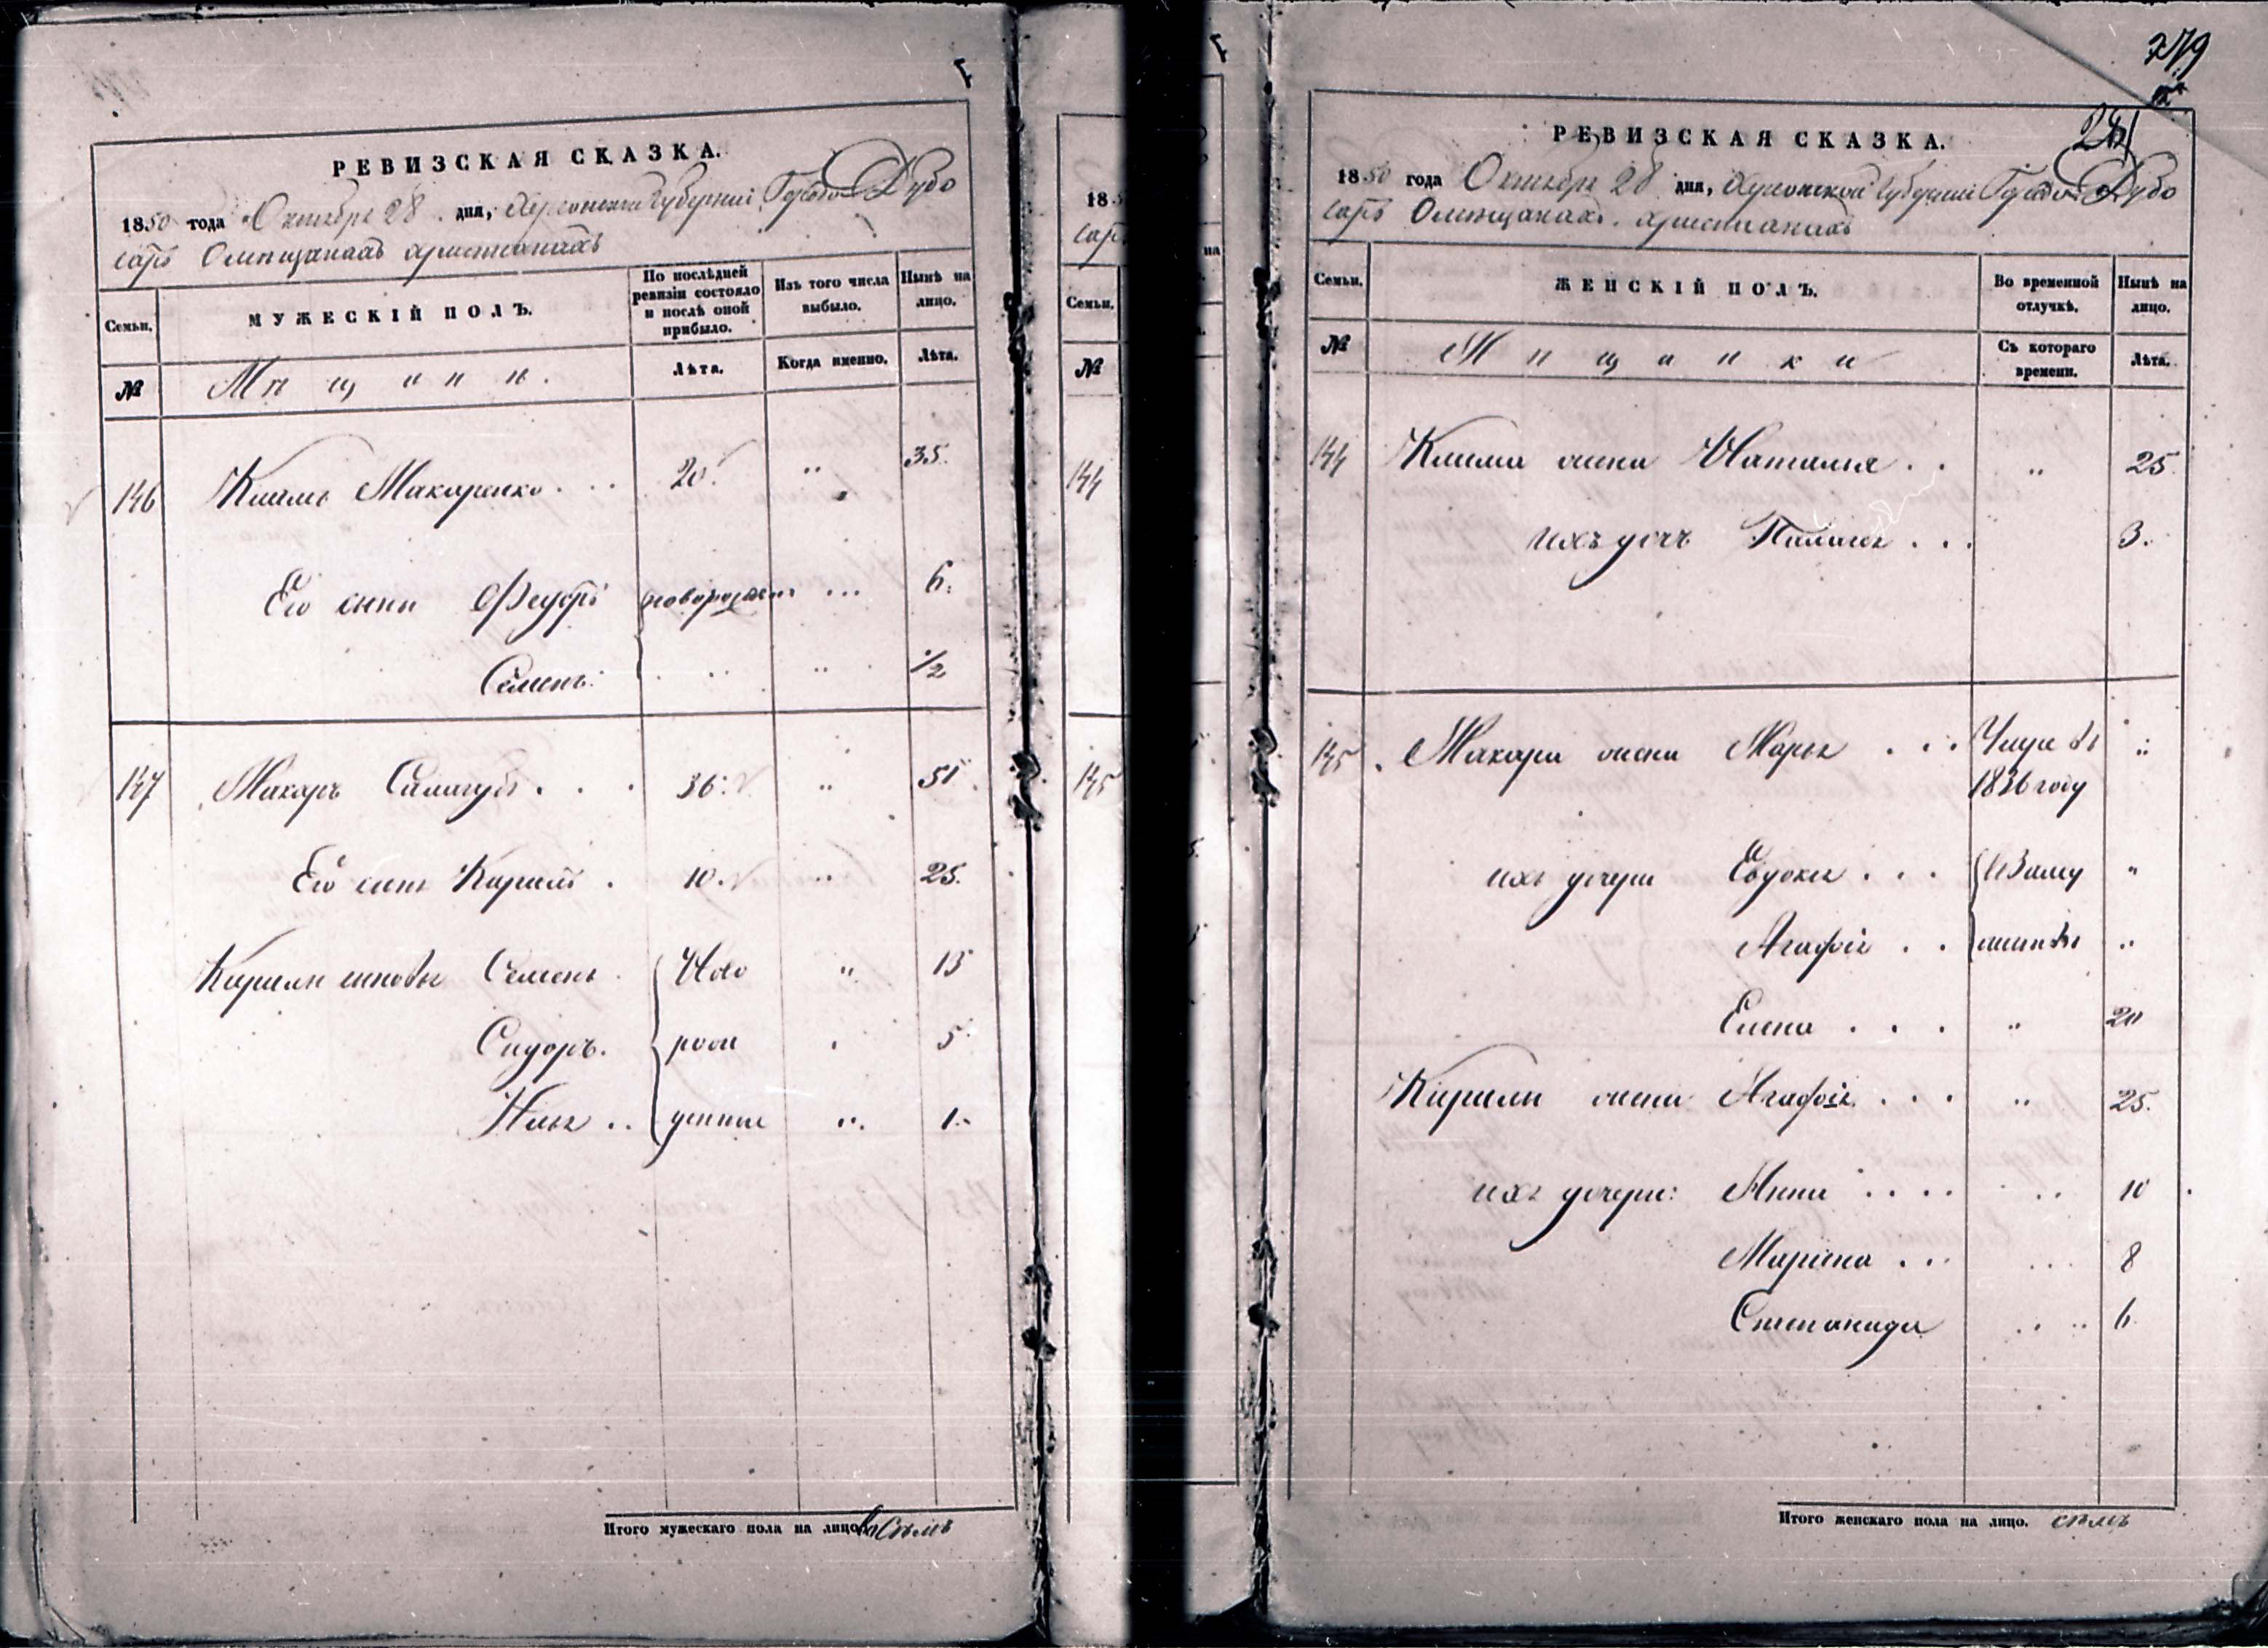 РЕВИЗСКАЯ СКАЗКА.
1850 года Октября 28 дня, Херсонской Губернии Города Дубо
саръ Омѣщанахъ христианахъ
Семьи. МУЖЕСКІЙ ПОЛЪ. По послѣдней ревизіи состояло и послѣ оной прибыло. Изъ того числа выбыло. Нынѣ на лицо.
№ Мѣщани. Лѣта. Когда именно. Лѣта.
146 Климъ Макаренко . . . 20. " 35.
Его сыны Федоръ новорожден ... 6.
Семенъ. " " 1/2
147 Макаръ Саламуръ . . . 36. " 51.
Его сынъ Кирилъ . 10. " 25.
Кирилы сыновья Семенъ Ново " 13
Сидоръ. рож " 5
Илья .. денные " 1.
Итого мужескаго пола на лицо. Восѣмъ
18
саръ
Семьи.
№
144
145
279
РЕВИЗСКАЯ СКАЗКА.
1850 года Октября 28 дня, Херсонской Губернии Города Дубо
саръ Омѣщанахъ христианахъ
Семьи. ЖЕНСКІЙ ПОЛЪ. Во временной отлучкѣ. Нынѣ на лицо.
№ Мѣщанки Съ котораго времени. Лѣта.
144 Клима жена Наталия . . " 25
ихъ дочь Палагея . . . 3.
145 Макара жена Марья . . . "
1836 году
ихъ дочери Евдокия . . . Взаму "
Агафия . . жества "
Елена . . . " 20
Кирилы жена Агафия . . . " 25.
ихъ дочери: Анна . . . . " 10
Марина . . . 8
Степанида 6
Итого женскаго пола на лицо. сѣмъ